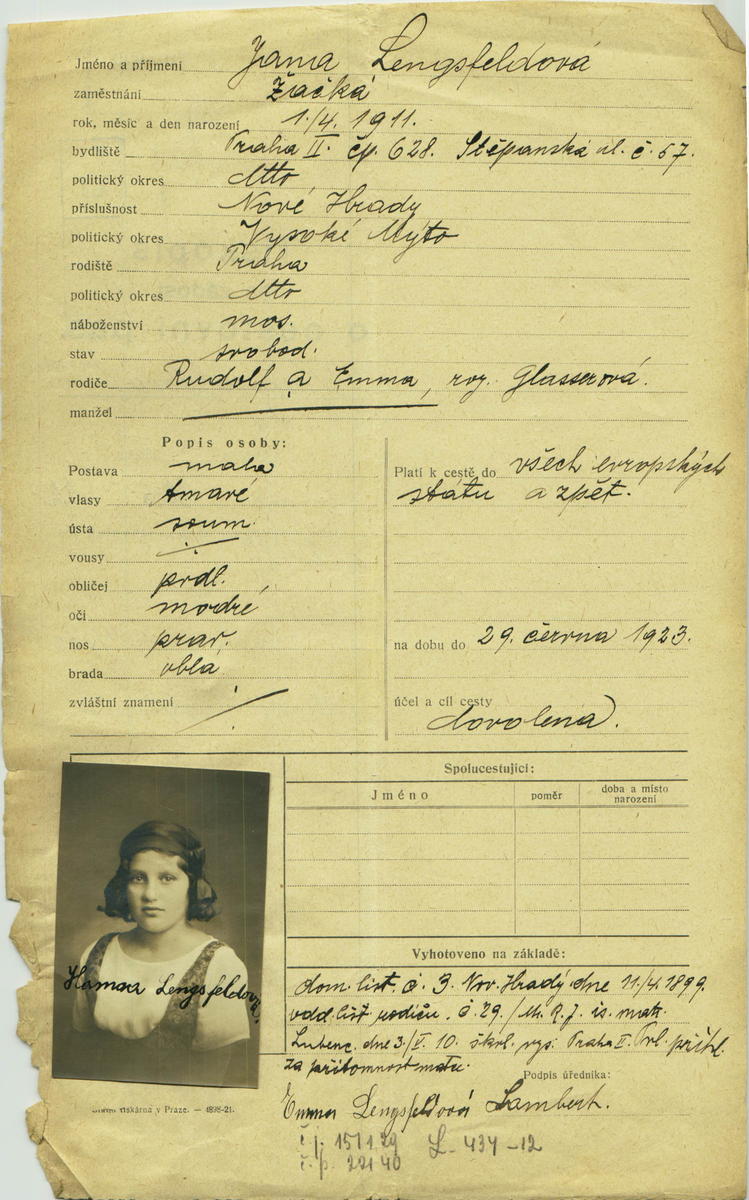 Jméno a příjmení Jana Lengsfeldová
zaměstnání žačka
rok, měsíc a den narození 1./4. 1911.
bydliště Praha II. čp. 628. Štěpanská ul. č. 57.
politický okres dtto
příslušnost Nové Hrady
politický okres Vysoké Mýto
rodiště Praha
politický okres dtto
náboženství mos.
stav svobod.
rodiče Rudolf a Emma, roz. Glasserová.
manžel
Popis osoby:
Postava malá
vlasy tmavé
ústa soum.
vousy
obličej prdl.
oči modré
nos prav.
brada oblá
zvláštní znamení
Platí k cestě do všech evropských
států a zpět.
na dobu do 29. června 1923.
účel a cíl cesty
dovolená.
Spolucestující:
Jméno poměr doba a místo narození
Hanna Lengsfeldova.
Vyhotoveno na základě:
dom. list. č. 3. Nov. Hrady dne 11/4. 1899.
odd. list rodičů. č. 29./ is. matr.
Lubenc. dne 3./V. 10. vys. Praha II. přihl.
za přítomnost matky.
Podpis úředníka:
Emma Lengsfeldová Lambert.
tiskárna v Praze. — 4898-21.
č. j. 151129 L- 437-12
č. p. 22140